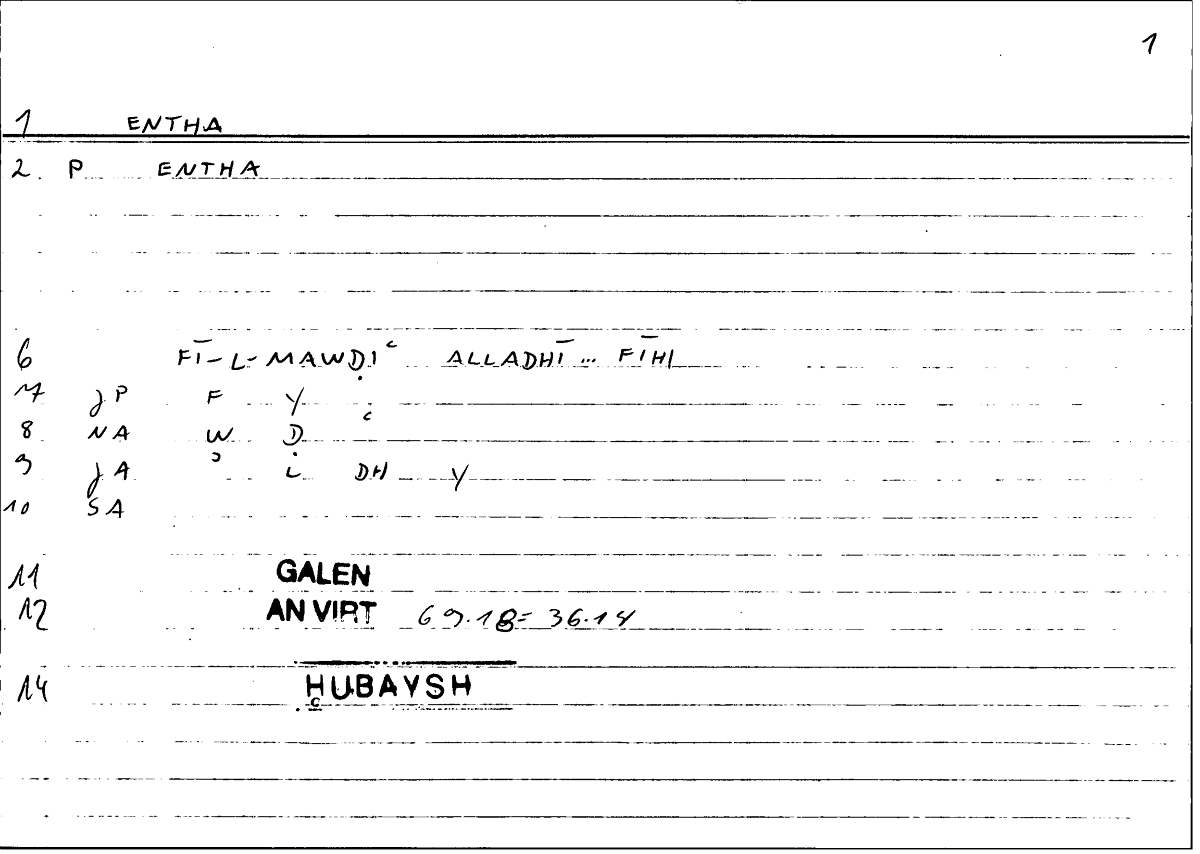 1
1 ENTHA
2. P ENTHA
6 FĪ-L-MAWḌIʿ ALLADHĪ ... FĪHI
7 jP F Y
8 NA W Ḍ ʿ
9 jA ʾ L DH Y
10 SA
11 GALEN
12 AN VIRT 69.18=36.14
14 HUBAYSH
C